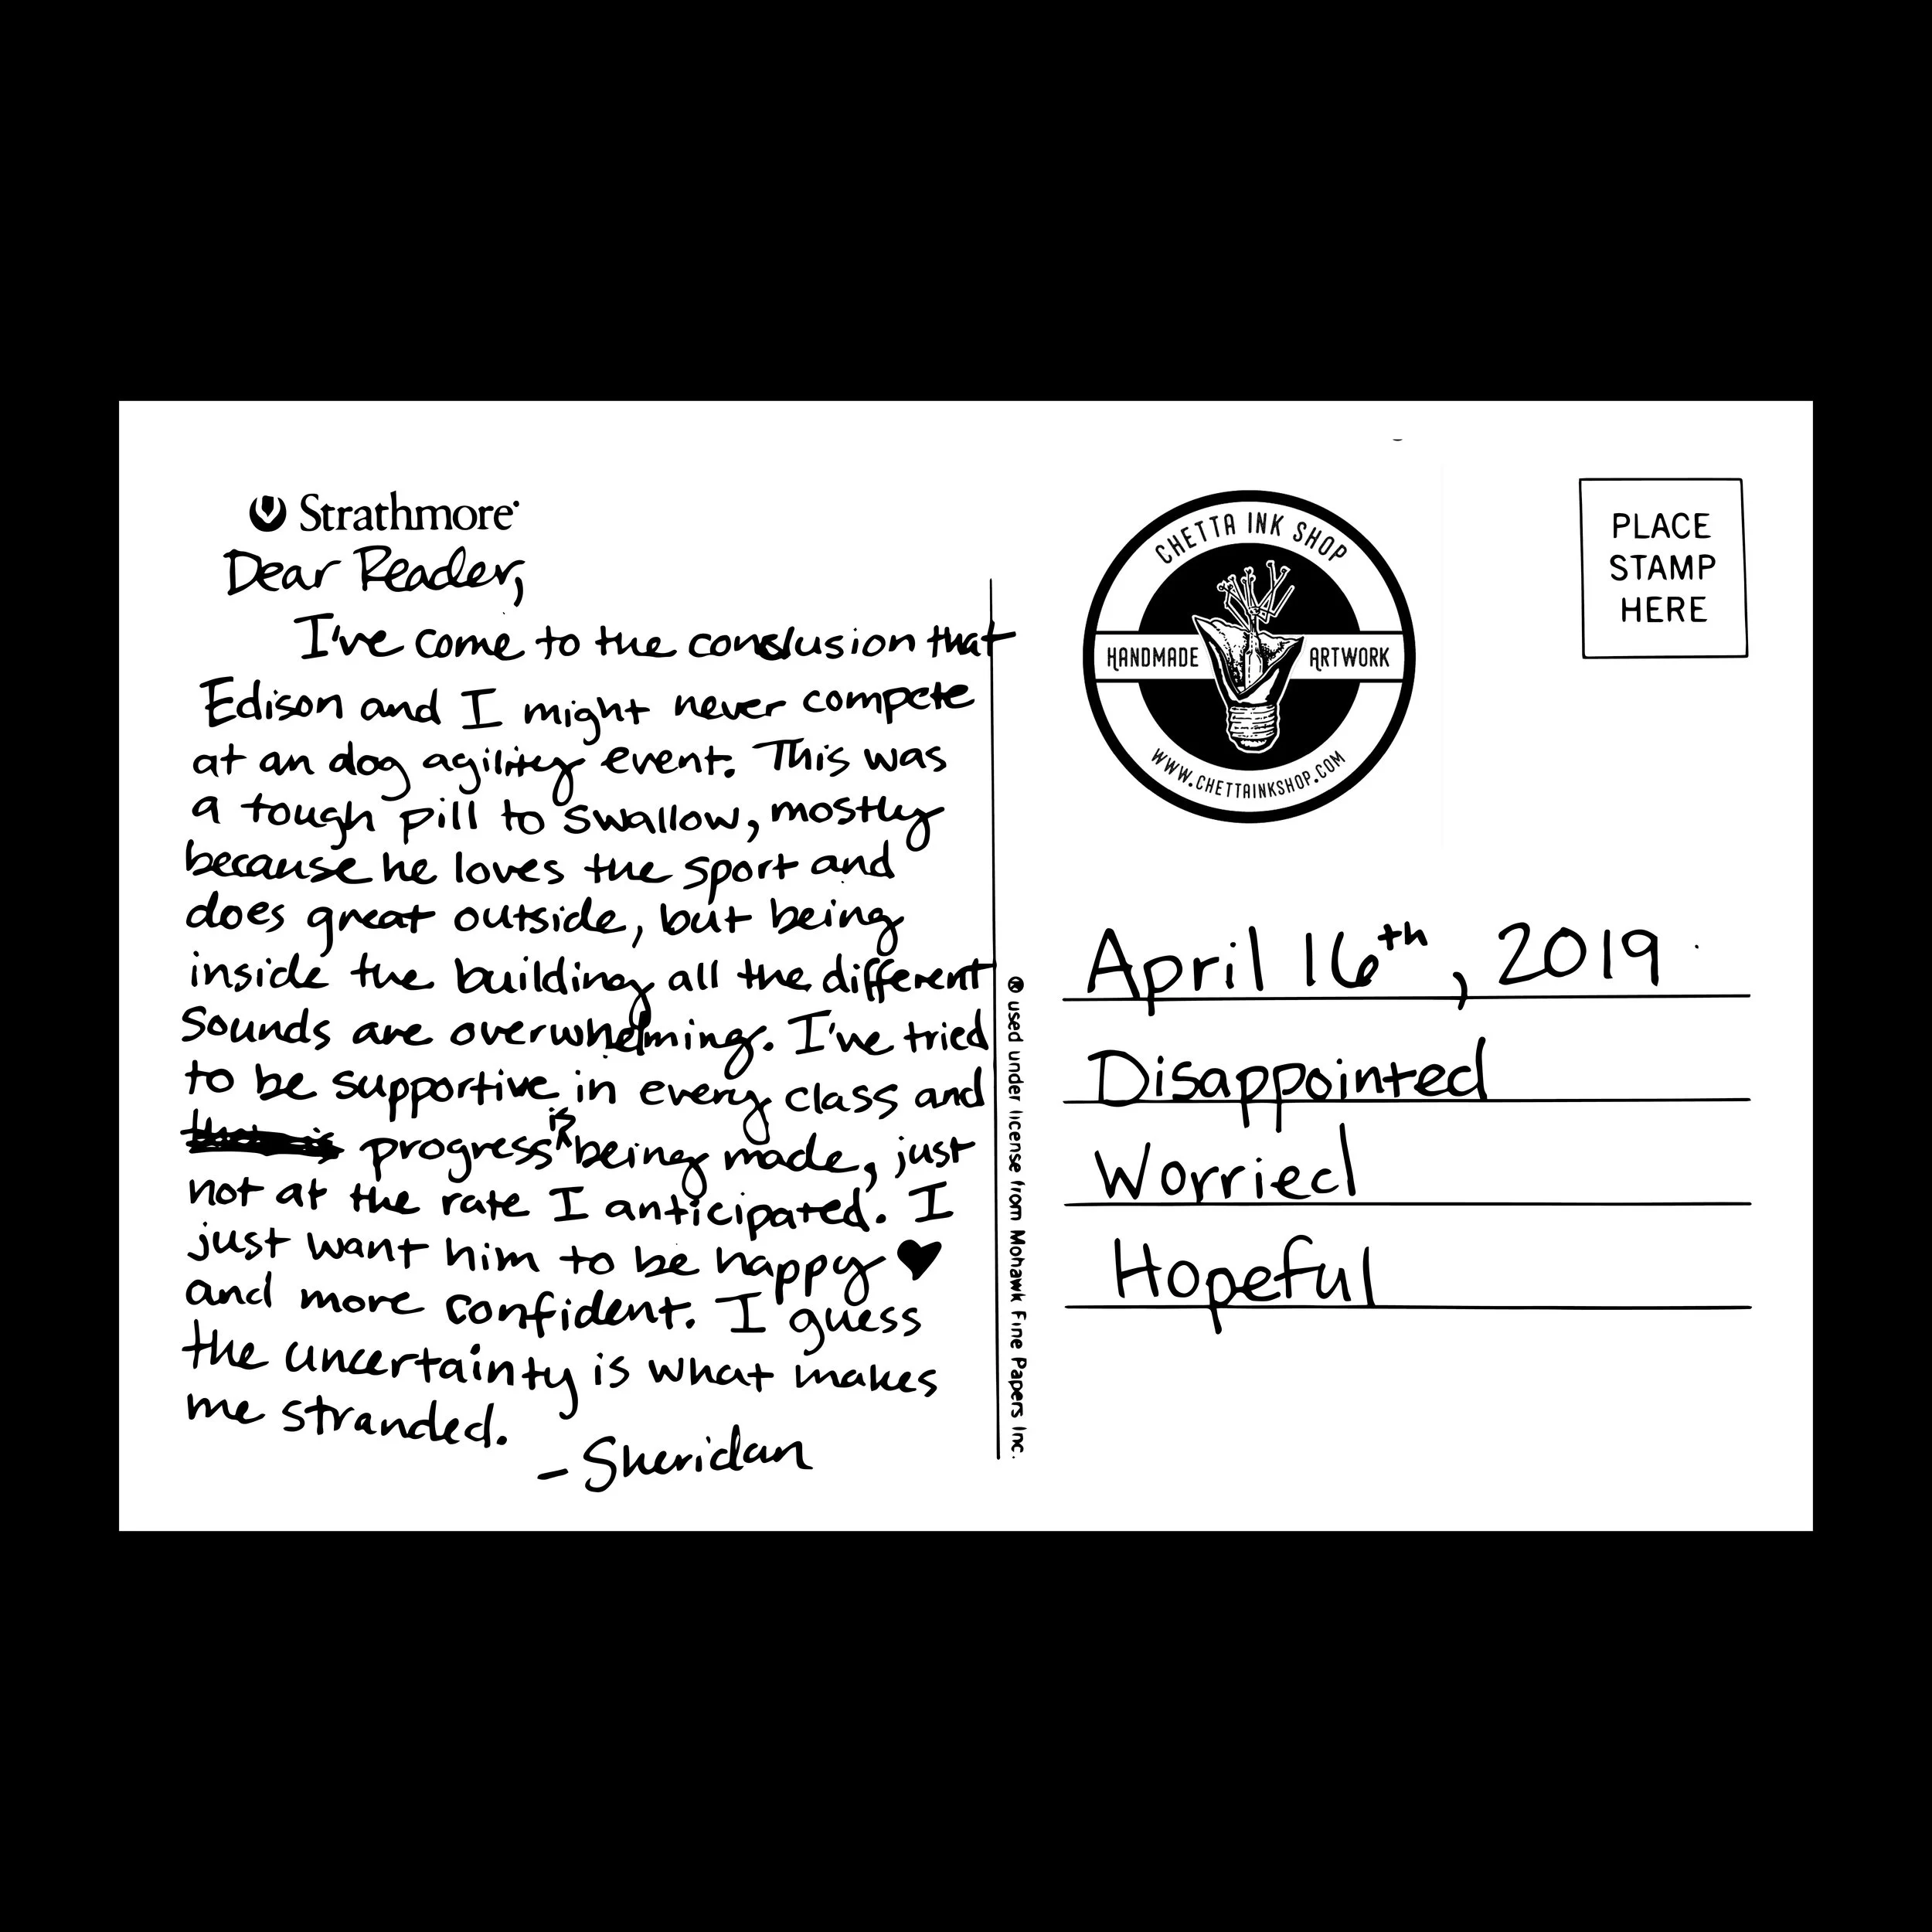 Strathmore
Dear Reader,
I've come to the conclusion that
Edison and I might never compete
at an dog agility event. This was
a tough pill to swallow, mostly
because he loves the sport and
does great outside, but being
inside the building all the different
sounds are overwhelming. I've tried
to be supportive in every class and
progress is being made, just
not at the rate I anticipated. I
just want him to be happy ♥
and more confident. I guess
the uncertainty is what makes
me stranded.
- Sheridan
used under license from Mohawk Fine Papers Inc.
CHETTA INK SHOP
HANDMADE ARTWORK
WWW.CHETTAINKSHOP.COM
PLACE
STAMP
HERE
April 16th, 2019
Disappointed
Worried
Hopeful